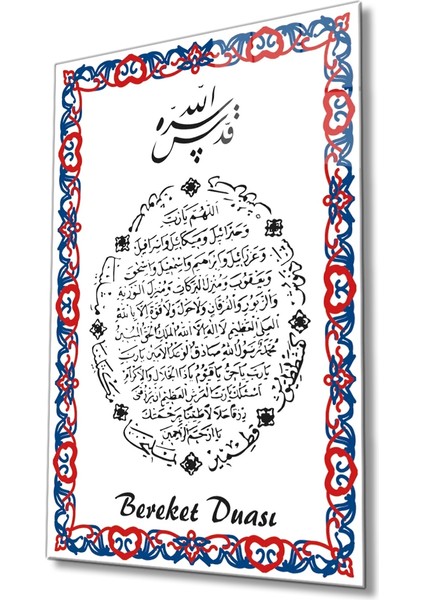 قدّس الله سرّه
اللهم يارب
وجبرائيل وميكائيل واسرافيل
وعزرائيل وابراهيم واسمعيل واسحق
ويعقوب ومنزل البركات ومنزل التورية
والزبور والفرقان ولا حول ولا قوة الا بالله
العلى العظيم لا اله الا الله الملك الحق المبين
محمد رسول الله صادق الوعد الامين يارب
يارب ياحى ياقيوم ياذا الجلال والاكرام
اسئلك يارب العرش العظيم ان ترزقنى
رزقا حلالا طيبا برحمتك
يا ارحم الراحمين
Bereket Duası